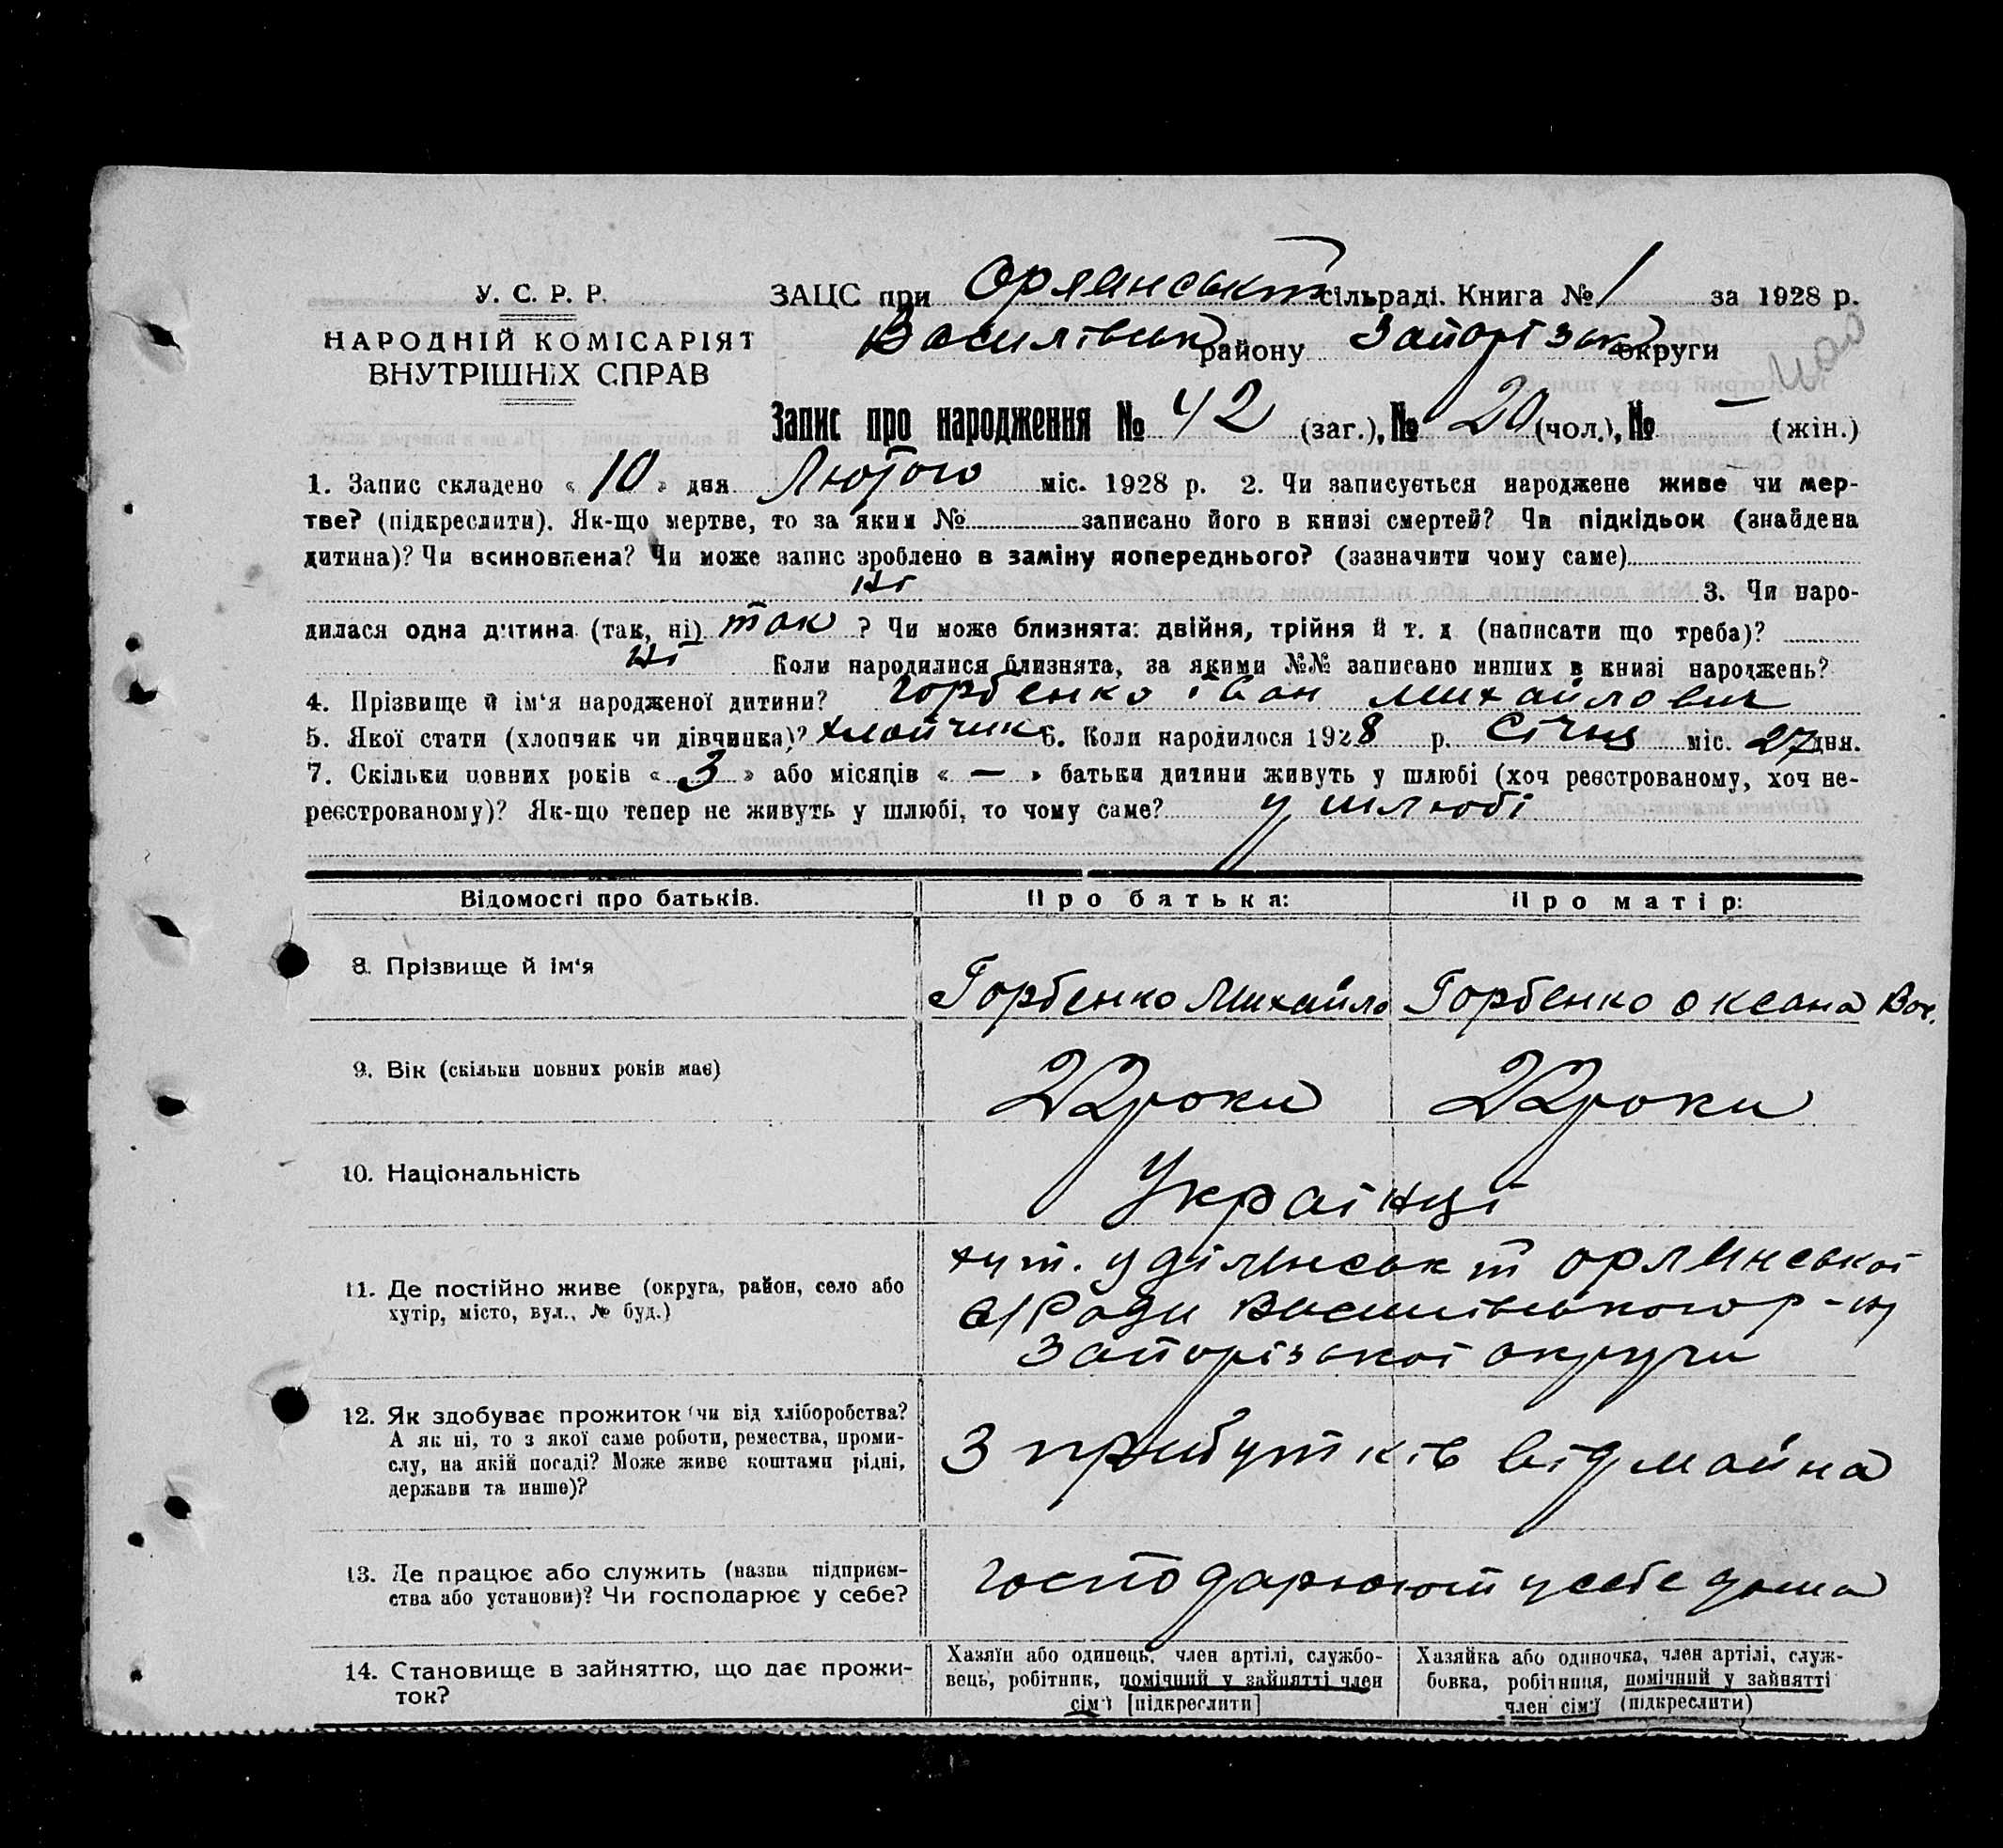 У. С. Р. Р.
НАРОДНІЙ КОМІСАРІЯТ
ВНУТРІШНІХ СПРАВ
ЗАЦС при Орлянськіт сільраді. Книга № 1 за 1928 р.
Василівськ району Запорізьк округи
Запис про народження № 42 (заг.), № 20 (чол.), № — (жін.)
1. Запис складено « 10 » дня Лютого міс. 1928 р. 2. Чи записується народжене живе чи мер-
тве? (підкреслити). Як-що мертве, то за яким № записано його в книзі смертей? Чи підкідьок (знайдена
дитина)? Чи всиновлена? Чи може запис зроблено в заміну попереднього? (зазначити чому саме)
Ні 3. Чи наро-
дилася одна дитина (так, ні) так ? Чи може близнята: двійня, трійня й т. д (написати що треба)?
Ні Коли народилися близнята, за якими №№ записано инших в книзі народжень?
4. Прізвище й ім‘я народженої дитини? Горбенко Іван Михайлович
5. Якої стати (хлопчик чи дівчинка)? хлопчик 6. Коли народилося 1928 р. Січня міс. 27 дня.
7. Скільки повних років « 3 » або місяців « — » батьки дитини живуть у шлюбі (хоч реєстрованому, хоч не-
реєстрованому)? Як-що тепер не живуть у шлюбі, то чому саме? у шлюбі
Відомості про батьків. Про батька: Про матір:
8. Прізвище й ім‘я Горбенко Михайло Горбенко Оксана Вас.
9. Вік (скільки повних років має) 22 роки 22 роки
10. Національність Українці
11. Де постійно живе (округа, район, село або
хутір, місто, вул., № буд.)
хут. Уділянськ Орлянської
с/Ради Василівського р-ну
Запорізької округи
12. Як здобуває прожиток (чи від хліборобства?
А як ні, то з якої саме роботи, ремества, проми-
слу, на якій посаді? Може живе коштами рідні,
держави та инше)?
З прибутків від майна
13. Де працює або служить (назва підприєм-
ства або установи)? Чи господарює у себе?
господарюют у себе дома
14. Становище в зайняттю, що дає прожи-
ток?
Хазяїн або одинець, член артілі, службо-
вець, робітник, помічний у зайнятті член
сім‘ї [підкреслити]
Хазяйка або одиночка, член артілі, служ-
бовка, робітниця, помічний у зайнятті
член сім‘ї (підкреслити)